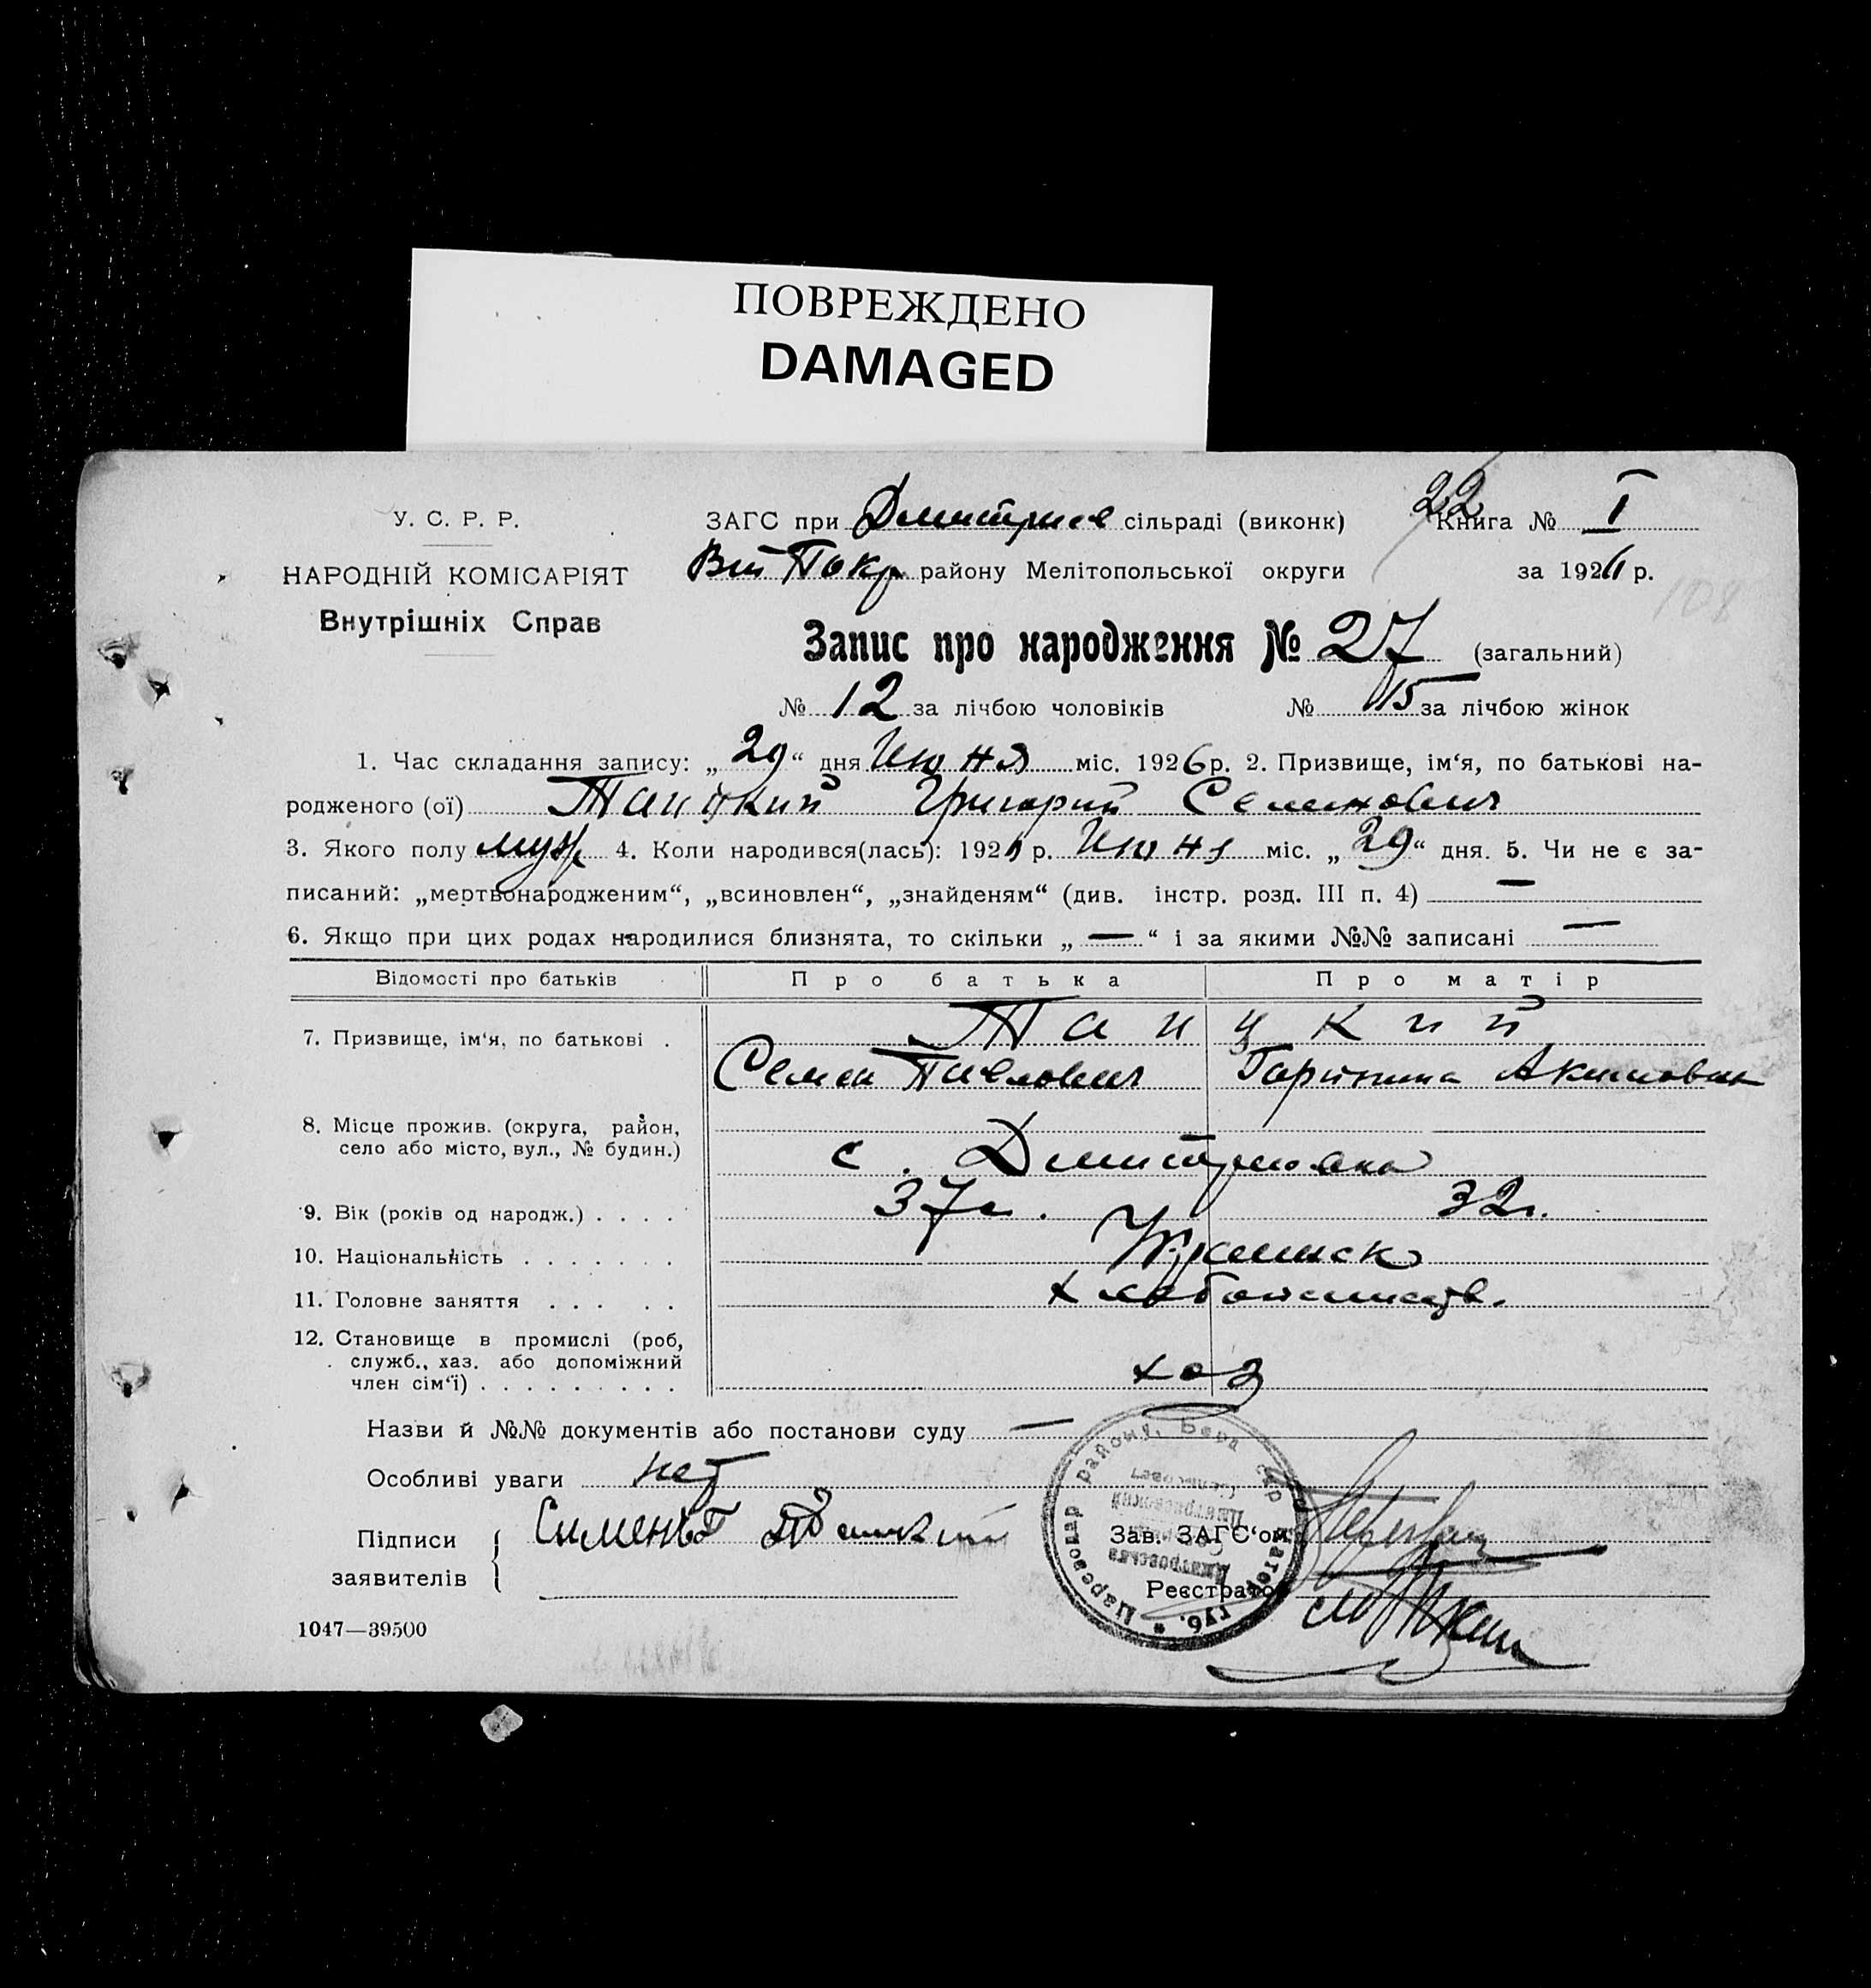 ПОВРЕЖДЕНО
DAMAGED
У. С. Р. Р.
НАРОДНІЙ КОМІСАРІЯТ
Внутрішніх Справ
ЗАГС при Дмитриев сільраді (виконк) Книга № I
22
Вт Покр району Мелітопольської округи за 1926 р.
108
Запис про народження № 27 (загальний)
№ 12 за лічбою чоловіків № 15 за лічбою жінок
1. Час складання запису: „29“ дня Июня міс. 1926 р. 2. Призвище, ім‘я, по батькові на-
родженого (ої) Танцкий Григорий Семенович
3. Якого полу муж 4. Коли народився(лась): 1926 р. Июня міс. „29“ дня. 5. Чи не є за-
писаний: „мертвонародженим“, „всиновлен“, „знайденям“ (див. інстр. розд. III п. 4) —
6. Якщо при цих родах народилися близнята, то скільки „—“ і за якими №№ записані —
Відомості про батьків Про батька Про матір
7. Призвище, ім‘я, по батькові . Танцкий
Семен Павлович Гарпина Акимовна
8. Місце прожив. (округа, район,
село або місто, вул., № будин.) с. Дмитровка
9. Вік (років од народж.) . . . . 37 г. 32 г.
10. Національність . . . . . . . Украинск
11. Головне заняття . . . . . хлебопашеств.
12. Становище в промислі (роб,
служб., хаз. або допоміжний
член сім‘ї) . . . . . . . . . хаз
Назви й №№ документів або постанови суду —
Особливі уваги нет
Підписи
заявителів
Сименъ
Зав. ЗАГС‘ом
Реєстратор
Цареводар району, Берд губ.
1047—39500